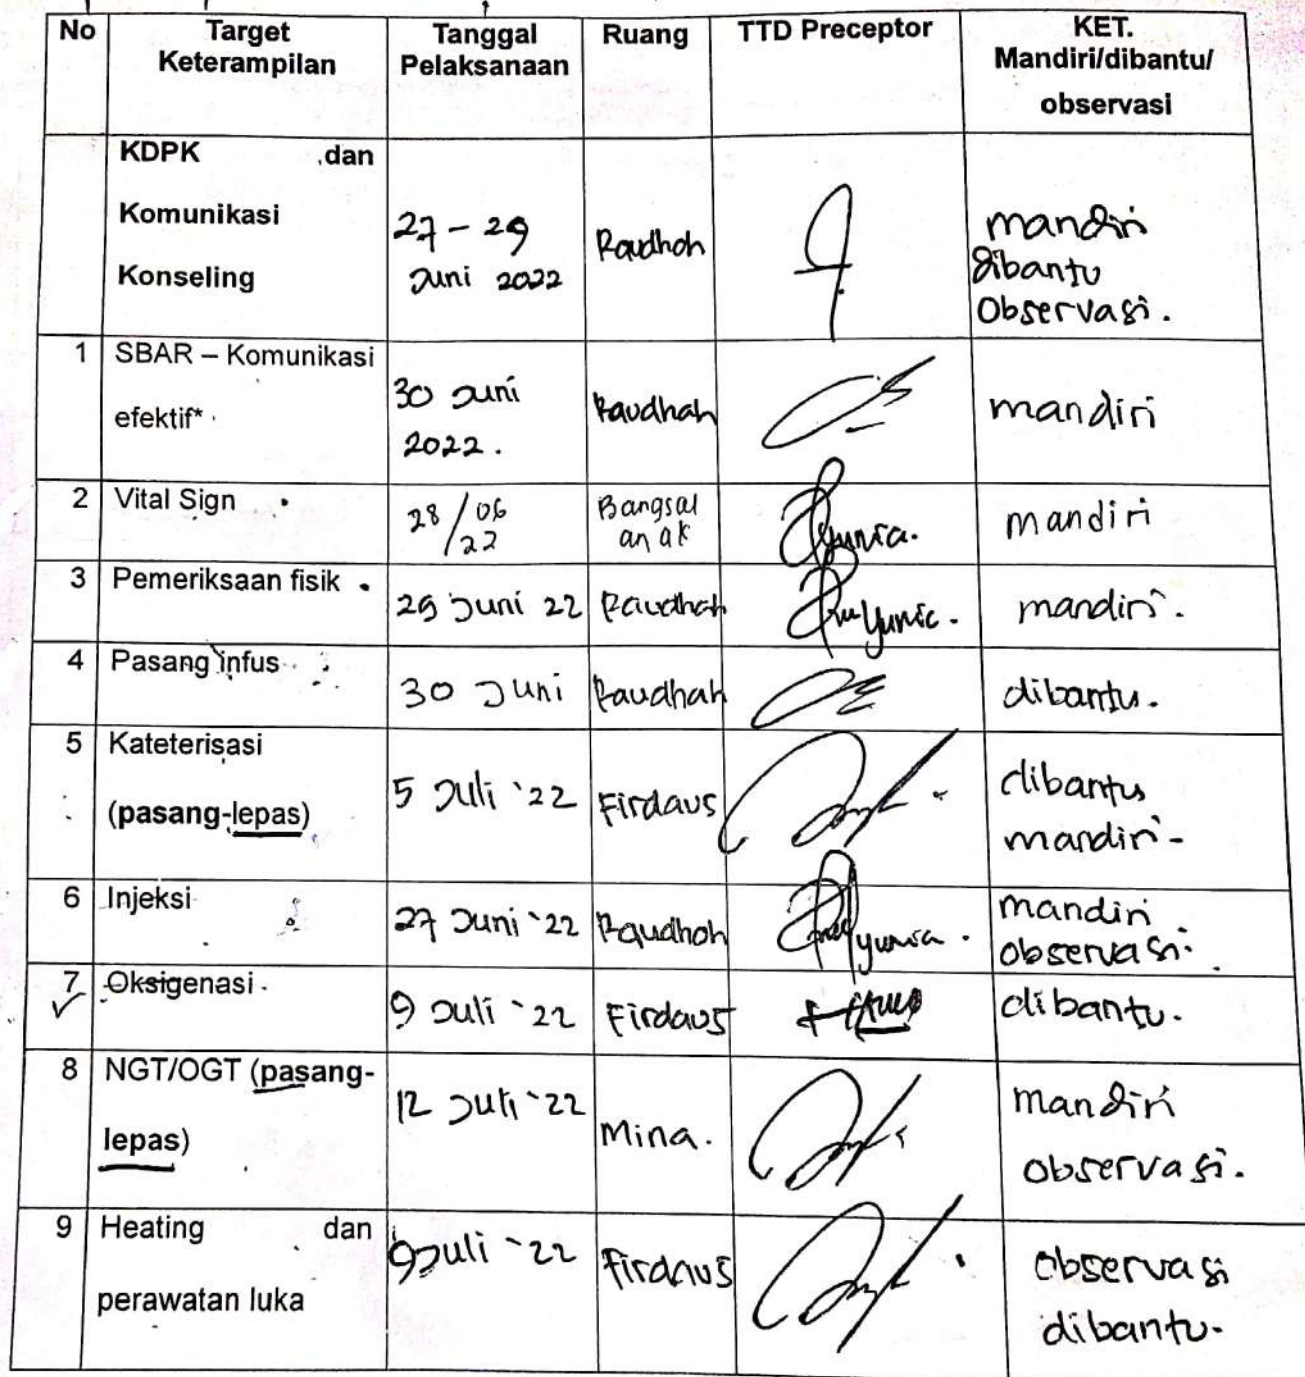 No Target Keterampilan Tanggal Pelaksanaan Ruang TTD Preceptor KET. Mandiri/dibantu/ observasi
KDPK dan
Komunikasi
Konseling
27 - 29
Juni 2022
Raudhoh
mandiri
dibantu
Observasi.
1 SBAR – Komunikasi
efektif*
30 Juni
2022.
Raudhah
mandiri
2 Vital Sign
28/06
22
Bangsal
anak
Yunia.
mandiri
3 Pemeriksaan fisik
29 Juni 22
Raudhah
mandiri.
4 Pasang infus
30 Juni
Raudhah
dibantu.
5 Kateterisasi
(pasang-lepas)
5 Juli '22
Firdaus
dibantu
mandiri-
6 Injeksi
27 Juni '22
Raudhoh
yunia.
mandiri
observasi.
7 Oksigenasi
9 Juli '22
Firdaus
dibantu.
8 NGT/OGT (pasang-
lepas)
12 Juli '22
Mina.
mandiri
observasi.
9 Heating dan
perawatan luka
9 Juli '22
Firdaus
observasi
dibantu.